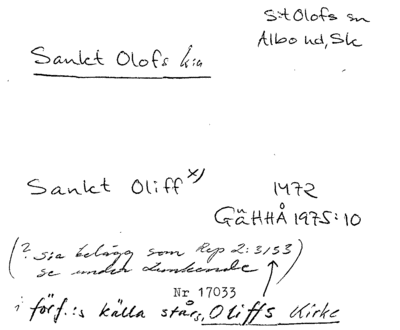 S:t Olofs sn
Albo hd, Sk
Sankt Olofs k:a
Sankt Oliff x) 1472
GäHHÅ 1975:10
(? s:a belägg som Rep 2:3153
se under Lunkende)
Nr 17033
i förf.:s källa står Oliffs Kirke